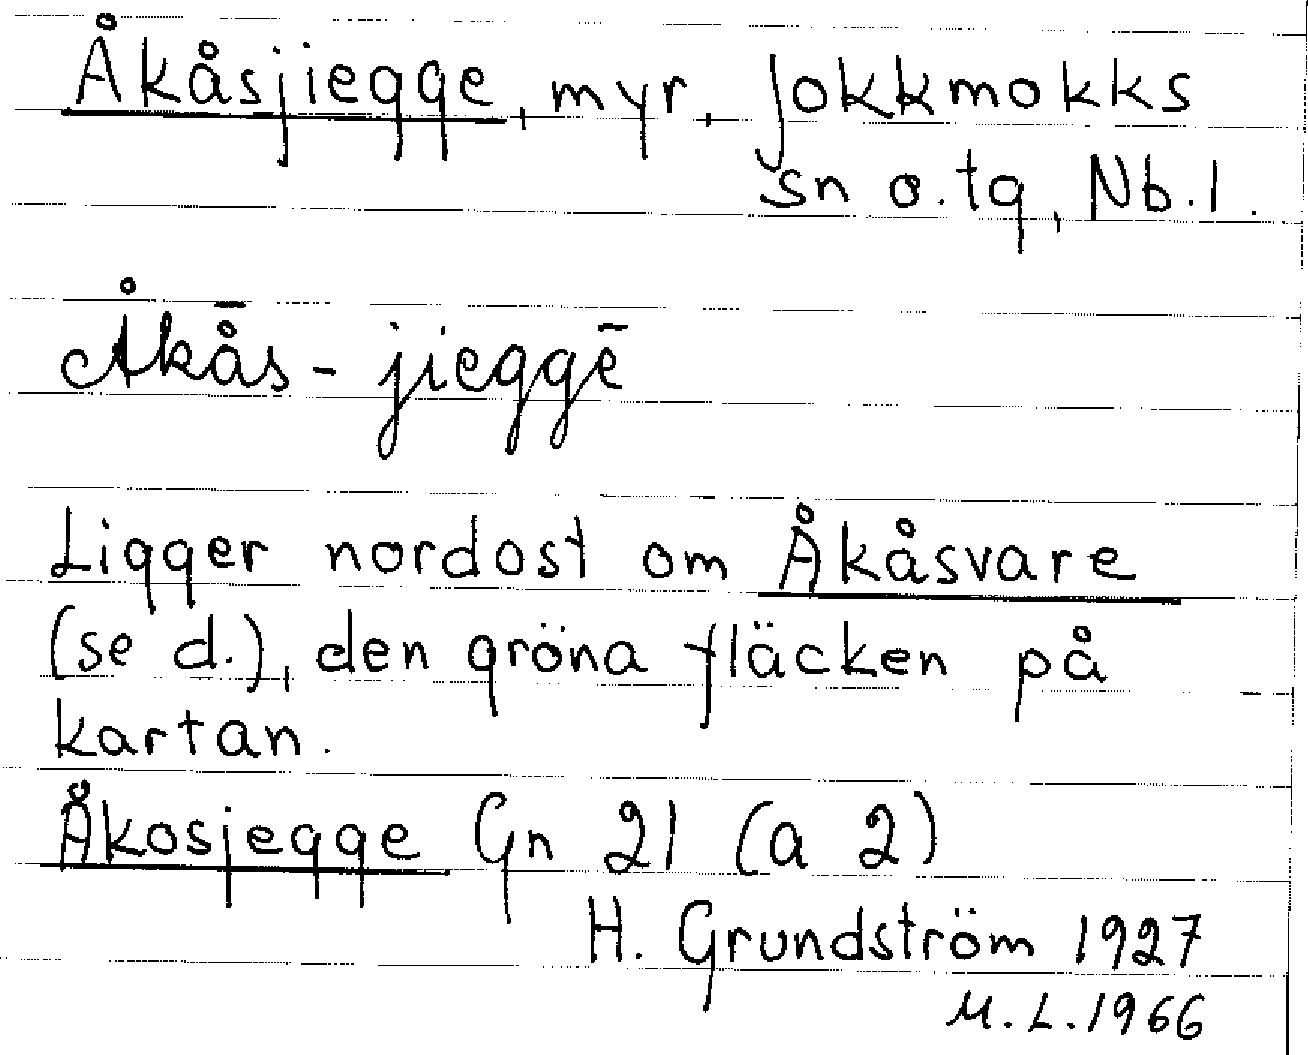 Åkåsjiegge, myr, Jokkmokks
sn o. tg, Nb. l.
Åkå̄s-jieggē
Ligger nordost om Åkåsvare
(se d.), den gröna fläcken på
kartan.
Åkosjegge Gn 21 (a 2)
H. Grundström 1927
M. L. 1966